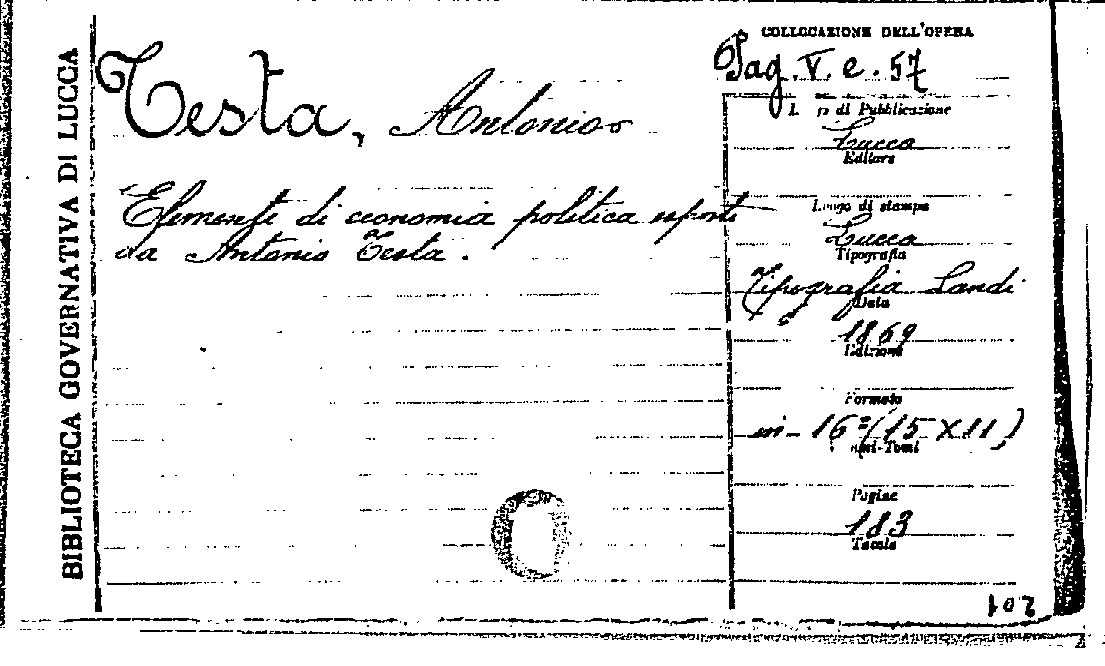 BIBLIOTECA GOVERNATIVA DI LUCCA
Testa, Antonio
Elementi di economia politica esposti
da Antonio Testa.
COLLOCAZIONE DELL'OPERA
Pag. V. e. 57
di Pubblicazione
Lucca
Editore
Luogo di stampa
Lucca
Tipografia
Tipografia Landi
Data
1869
Edizione
Formato
in-16°(15 X 11)
Pagine
183
Tavole
102